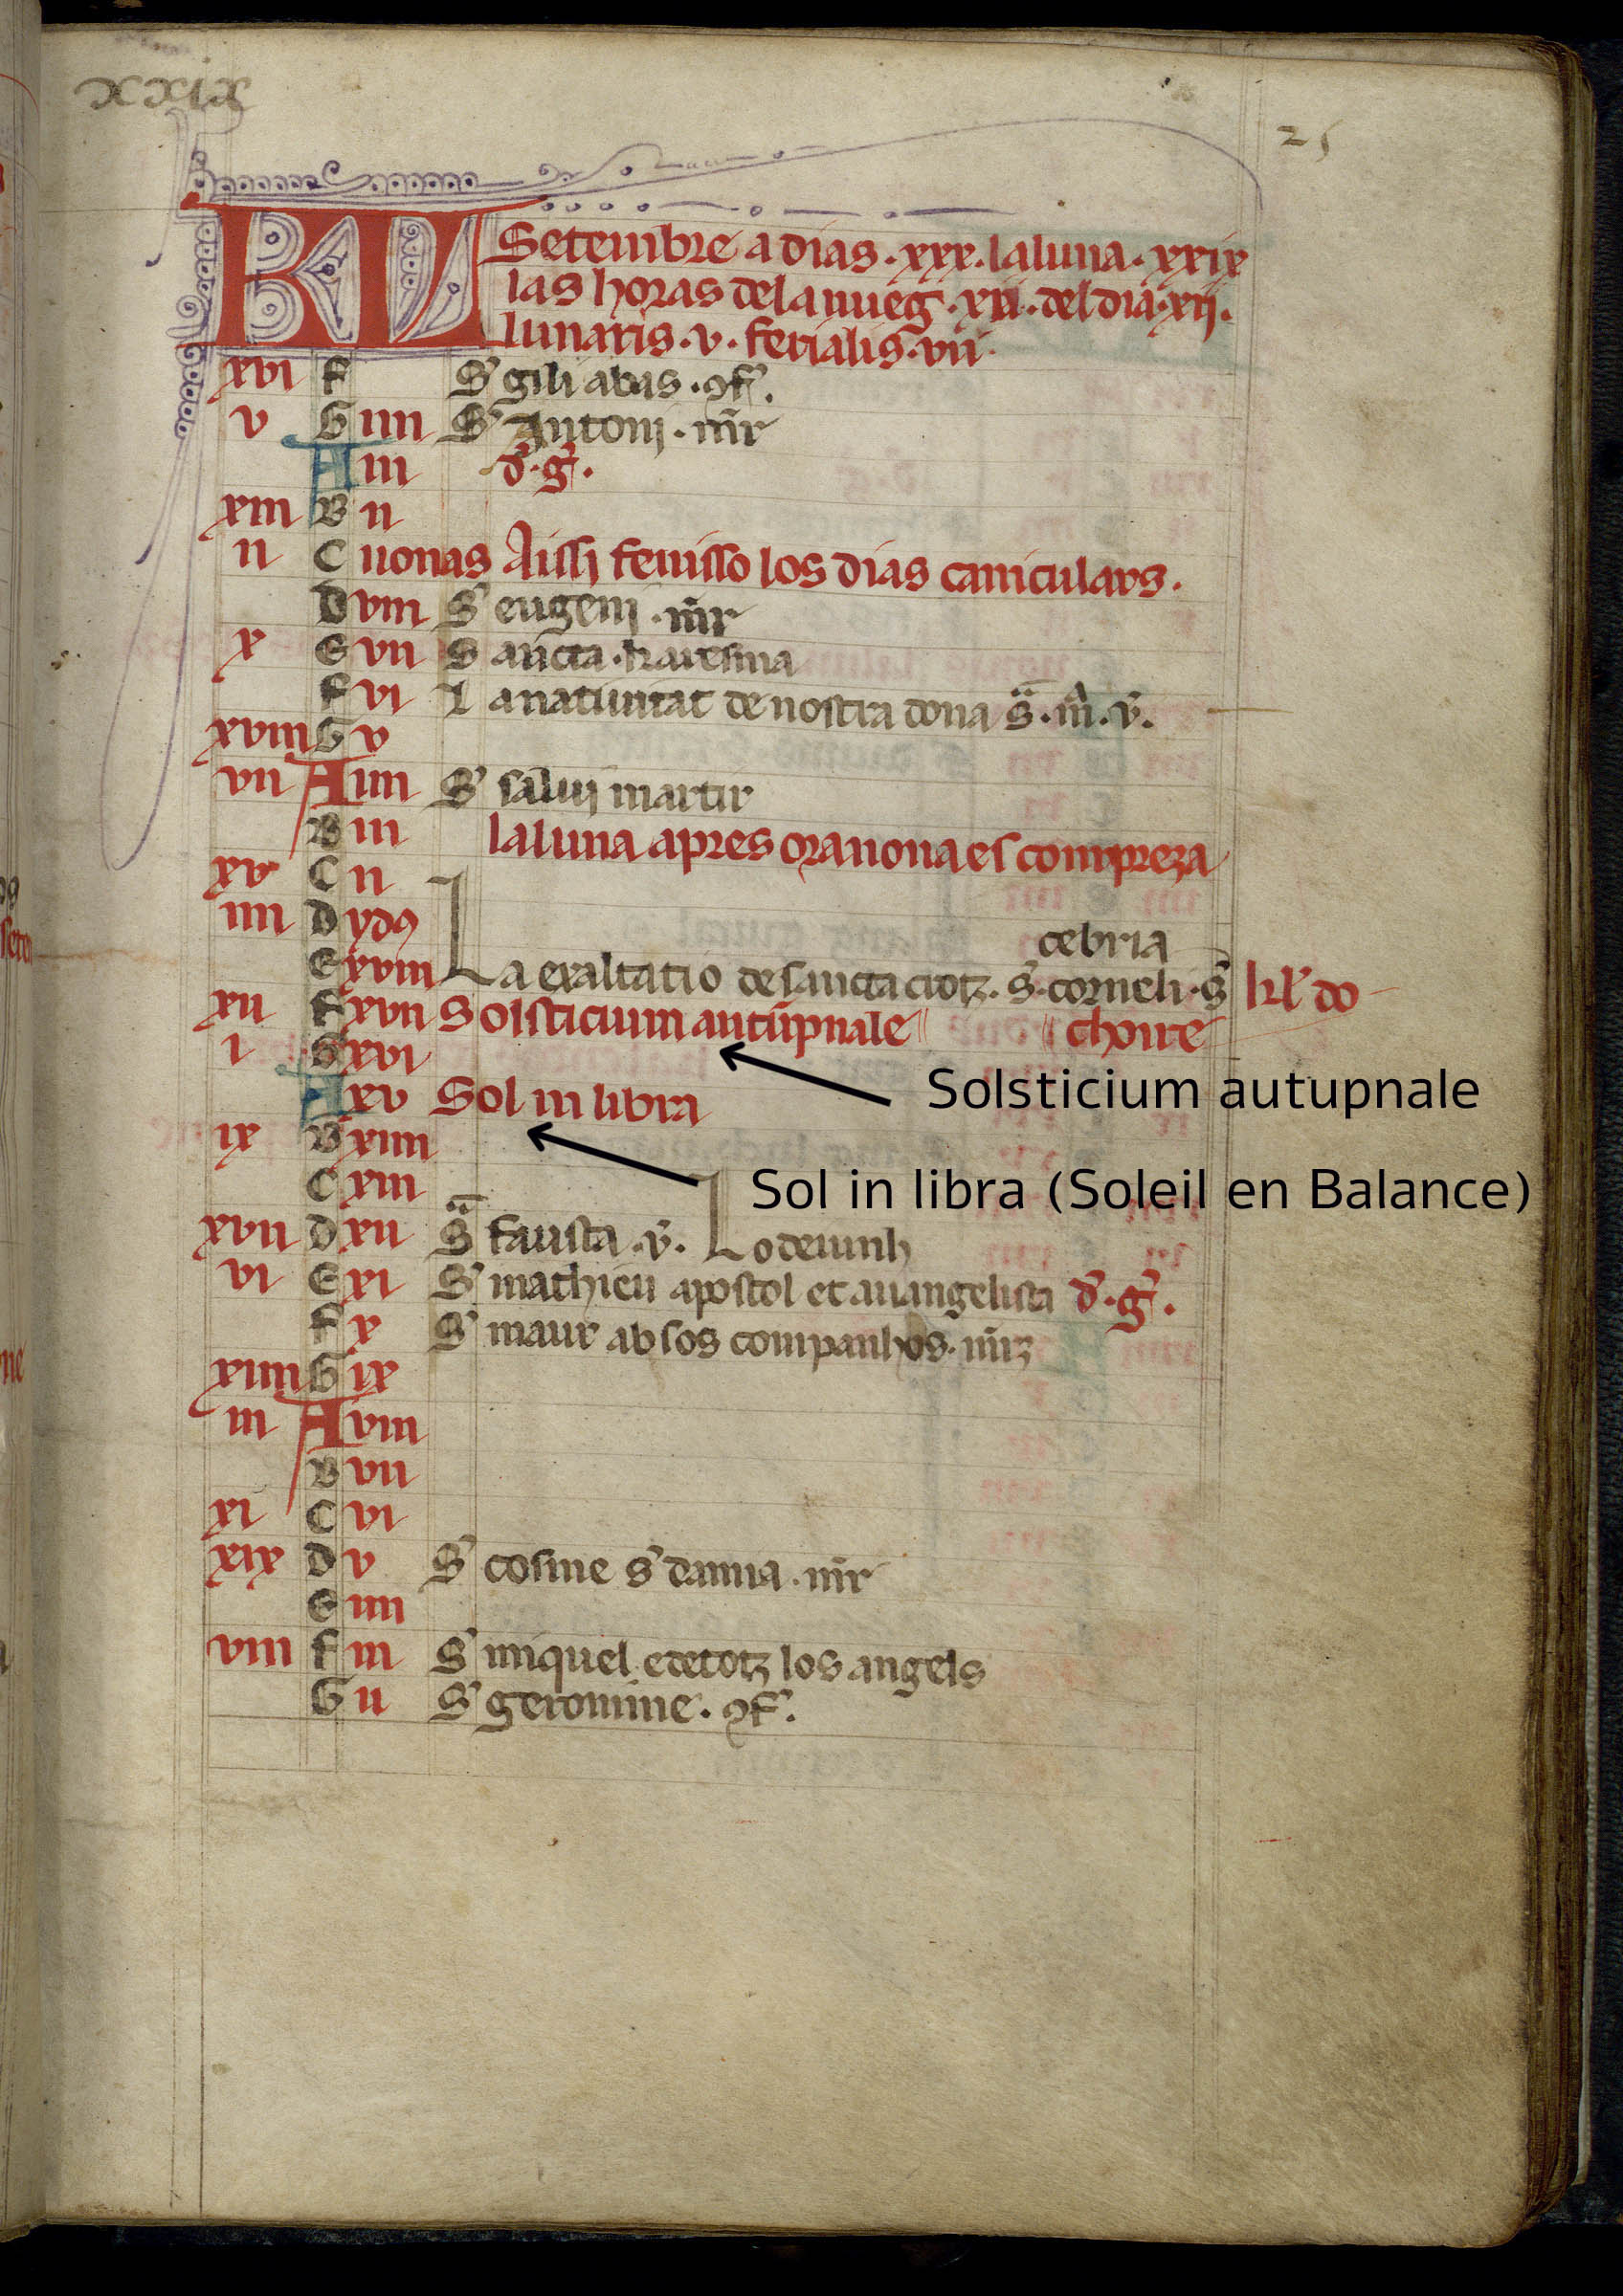 xxix
25
KL Setembre a dias · xxx · la luna · xxix
las horas dela nueg · xii · del dia · xij ·
lunaris · v · ferialis · vii ·
xvi f S' gili abas · ɔf' ·
v G iiii S' Antonj · mr̄
A iii d' · g' ·
xiii B ii
ii C nonas Aissj fenisso los dias caniculars ·
D viii S' eugenj · mr̄
x E vii Sancta ·
f vi La nativitat de nostra dona s̄ · m̄ · v̄ ·
xviii G v
vii A iiii S' salvij martir
B iii la luna apres ora nona es compreza
xv C ii
iiii D ydꝯ cebria
E xviii La exaltatio de sancta crotz · S' · corneli · S' kl' do
xii f xvii Solsticium autūpnale choire
i G xvi
Solsticium autupnale
A xv Sol in libra
ix B xiiii
C xiii
Sol in libra (Soleil en Balance)
xvii D xii S̄ fausta · v̄ · Lo deiunh
vi E xi S' mathieu apostol et avangelista d' · g' ·
f x S' maur ab sos companhos · mr̄z
xiiii G ix
iii A viii
B vii
xi C vi
xix D v S' cosme S' damia · mr̄
E iiii
viii f iii S' miquel e de totz los angels
G ii S' geronime · ɔf' ·